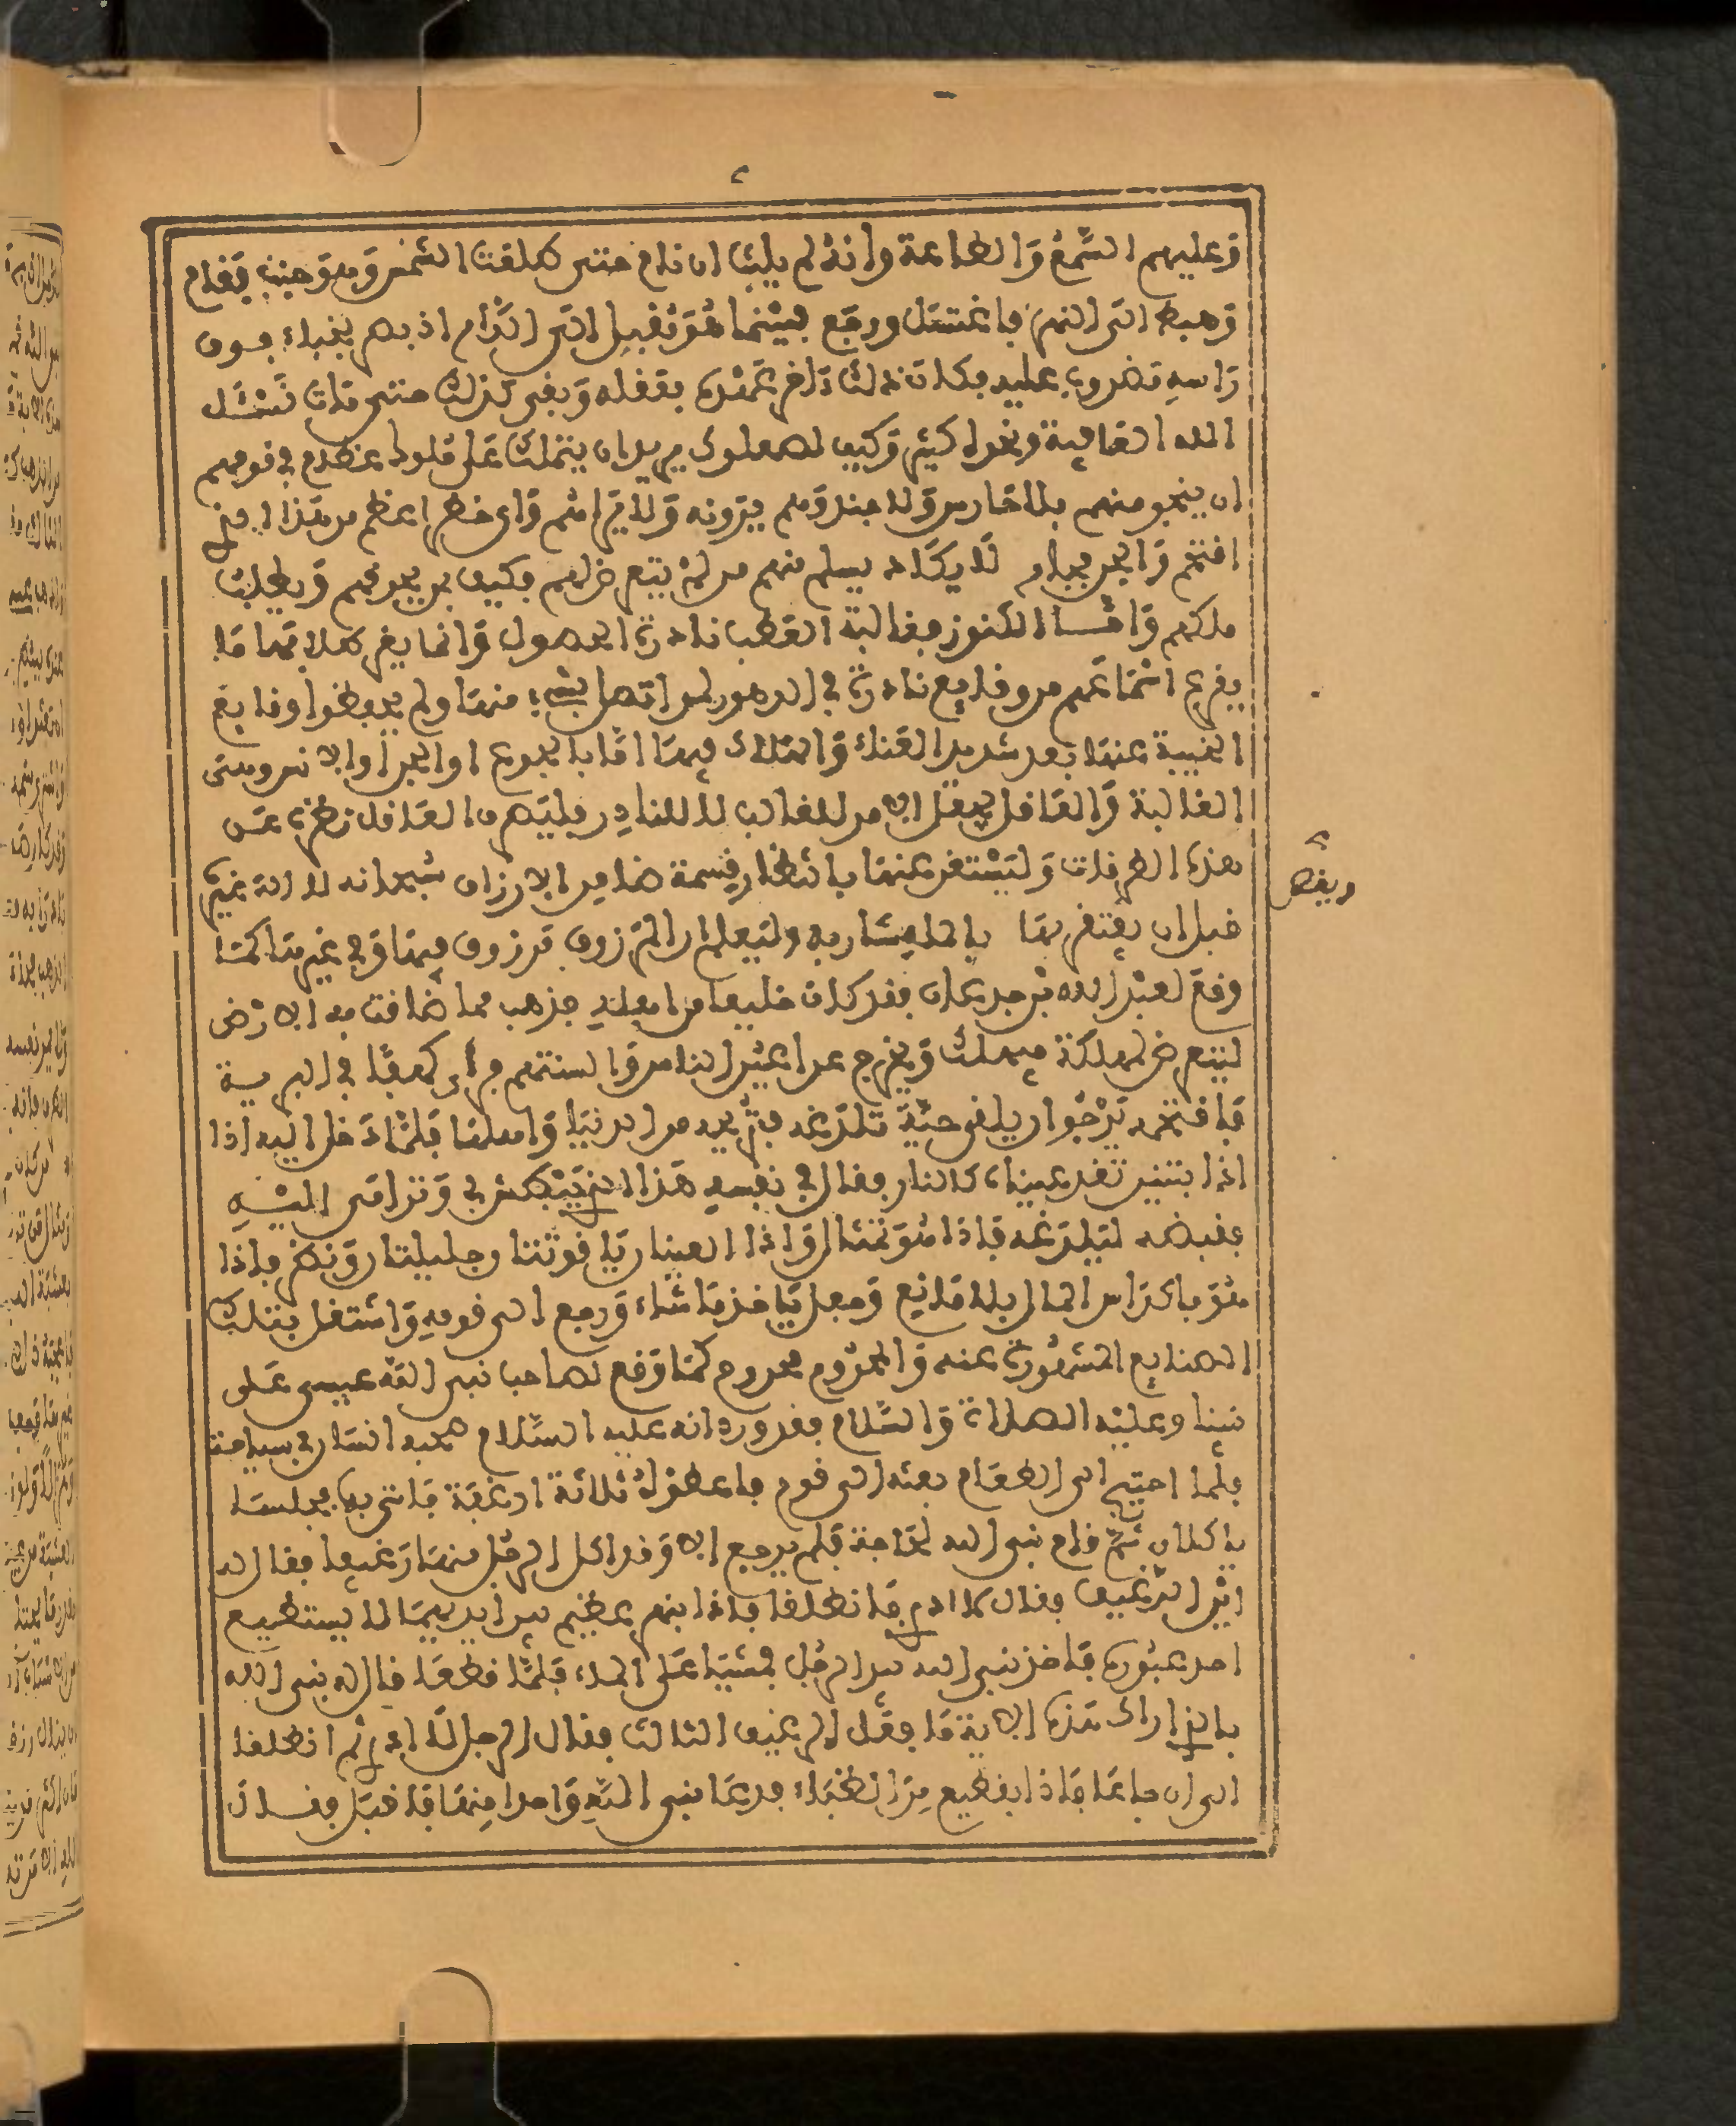 وعليهم السمع والطاعة وانه لم يلبث ان نام حتى طلعت الشمس وهو جنب فقام
وهبط الى النهر فاغتسل ورجع فبينما هو مقبل الى الدام اذ بصر بخباء فوق
راسه مضروب عليه فكان ذلك اخر عهده بعقله وبقي كذلك حتى مات نسئل
الله العافية ونحوه كثير وكيف لصعلوك يريد ان يتملك على ملوك عظام في قومهم
ان ينجو منهم بلا حارس ولا جند وهم يرونه ولا يراهم واي خطر اعظم من هذا الذي
اقتحم والجن لا يكاد يسلم منهم من لم يتعرض لهم فكيف بمن يحوفهم ويطلب
ملكهم واما الكنوز فغالبة العطب نادرة الحصول وانما يغر طلابها ما
يقرع اسماعهم من وقايع نادرة في الدهور لمن اتصل بشيء منها ولم يحفظوا وقايع
الخيبة عنها بعد شديد العناء والهلاك فيها اما بالجوع او الجن او الانس وهي
الغالبة والعاقل يجعل الامر للغالب لا للنادر فليصرف العاقل نظره عن
هذه الطرقات وليستغن عنها بانتظار قسمة ضامن الارزاق سبحانه لا اله غيره
قبل ان يفتقر بها وليعلم ان المرزوق مرزوق فيها وفي غيرها كما
ويفتض
وقع لعبد الله بن جدعان فقد كان خليعا من اهله فذهب لما ضاقت به الارض
ليتعرض لهلكة فيهلك ويخرج عن اعين الناس والسنتهم فراى كهفا في البرية
فاقتحمه يرجو ان يلقى حية تلدغه فتريحه من الدنيا واهلها فلما دخل اليه اذا
اذا بتنين تقد عيناه كالنار فقال في نفسه هذا الذي يبطش بي وترامى اليه
فقبضه ليلدغه فاذا هو تمثال واذا العينان ياقوتتا وجليلتان ونظر فاذا
هو باكداس المال بلا مانع وجعل ياخذ ما شاء ورجع الى قومه واشتغل بتلك
الصنايع المشهورة عنه والمحروم محروم كما وقع لصاحب نبي الله عيسى على
نبينا وعليه الصلاة والسلام فقد ورد انه عليه السلام صحبه انسان في سياحته
فلما احتيج الى الطعام بعثه الى قوم فاعطوه ثلاثة ارغفة فاتى بها فجلسا
ياكلان ثم قام نبي الله لحاجة فلم يرجع الا وقد اكل الرجل منها رغيفا فقال له
اين الرغيف فقال لا ادري فانطلقا فاذا بنهر عظيم بين ايديهما لا يستطيع
احد عبوره فاخذ نبي الله بيد الرجل فمشيا على الماء فلما قطعا قال له نبي الله
بالذي اراك هذه الاية ما فعل الرغيف الثالث فقال الرجل لا ادري ثم انطلقا
الى ان جاعا فاذا بقطيع من الظباء فدعا نبي الله واحدا منها فاقبل فقال